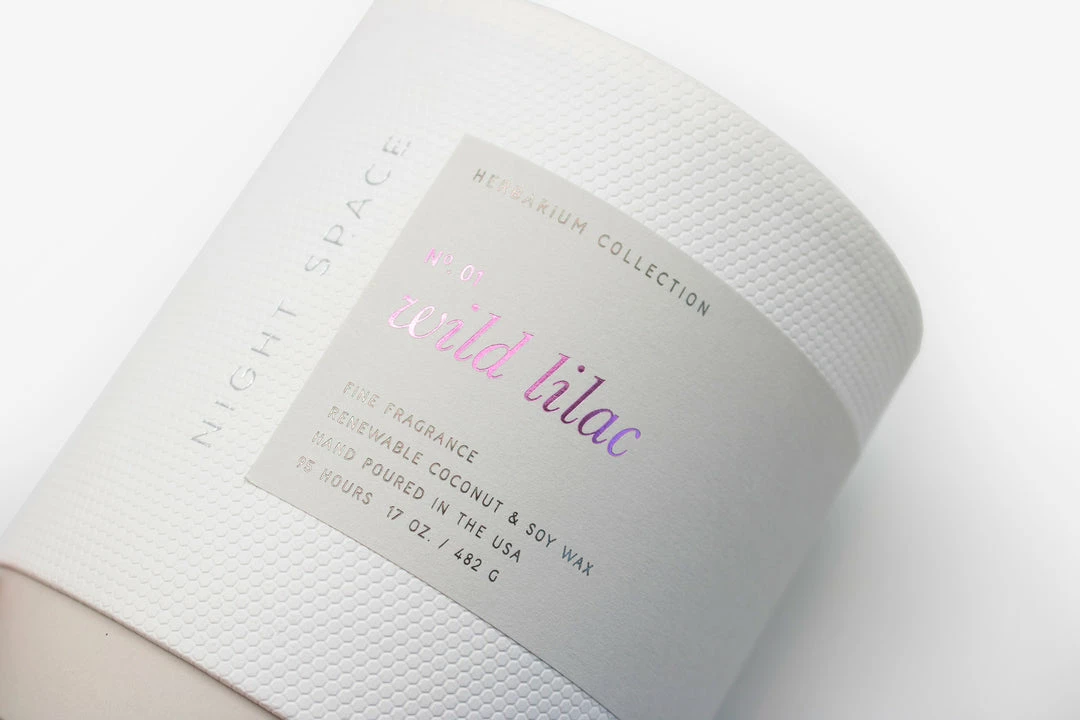 NIGHT SPACE
HERBARIUM COLLECTION
Nº. 01
wild lilac
FINE FRAGRANCE
RENEWABLE COCONUT & SOY WAX
HAND POURED IN THE USA
95 HOURS 17 OZ. / 482 G